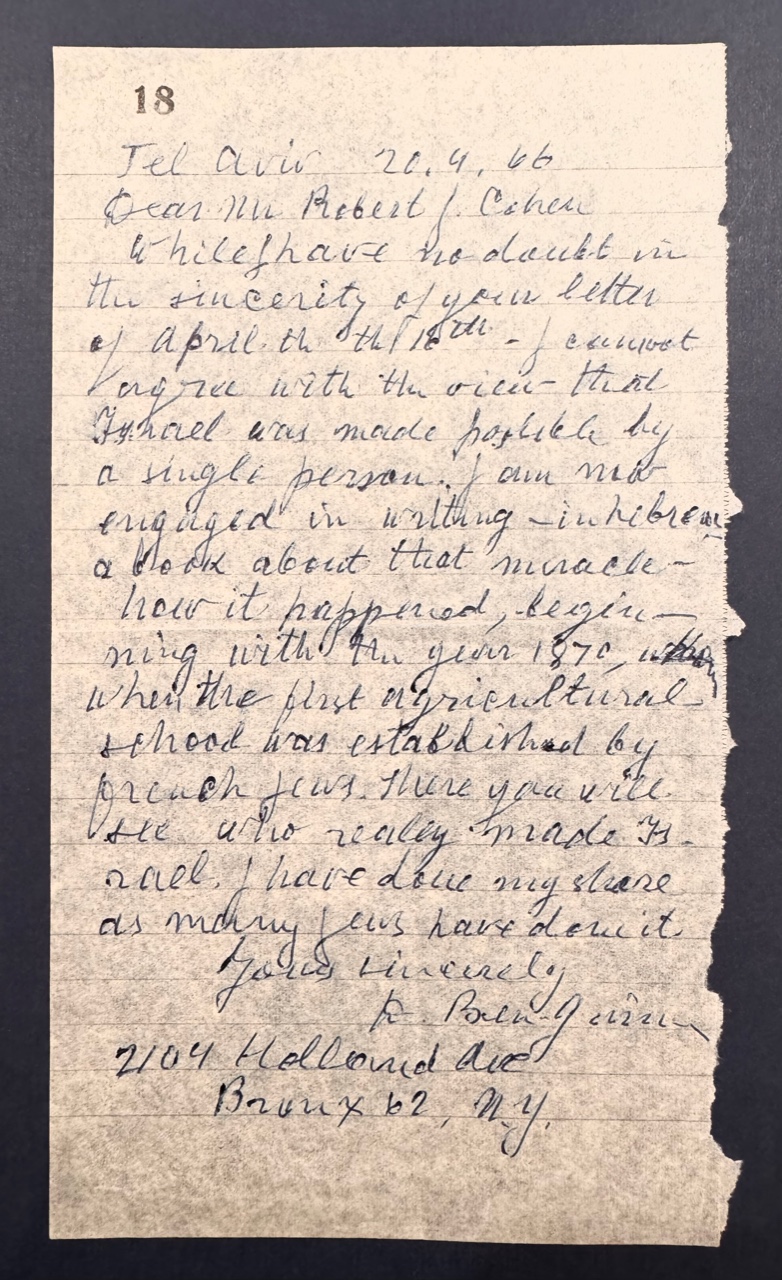 18
Tel Aviv 20.4.66
Dear Mr Robert J. Cohen
While I have no doubt in
the sincerity of your letter
of April th the 16th - I cannot
agree with the view that
Israel was made possible by
a single person. I am now
engaged in writing - in hebrew
a book about that miracle -
how it happened, begin-
ning with the year 1870,
when the first agricultural
school was established by
french Jews. There you will
see who realy made Is-
rael. I have done my share
as many Jews have done it
Yours sincerely
D. Ben-Gurion
2104 Holland Ave
Bronx 62, N.Y.